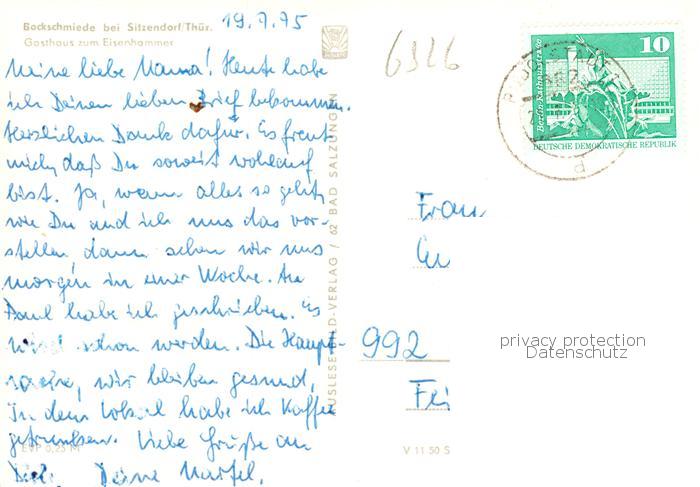 Bockschmiede bei Sitzendorf/Thür.
Gasthaus zum Eisenhammer
19.7.75
Meine liebe Mama! Heute habe
ich Deinen lieben Brief bekommen.
Herzlichen Dank dafür. Es freut
mich, daß Du soweit wohlauf
bist. Ja, wenn alles so geht,
wie Du und ich uns das vor-
stellen, dann sehen wir uns
morgen in einer Woche. An
Paul habe ich geschrieben. Es
wird schon werden. Die Haupt-
sache, wir bleiben gesund.
In dem Lokal habe ich Kaffee
getrunken. Liebe Grüße an
Dich. Deine
EVP 0,25 M
AUSLESE-BILD-VERLAG / 62 BAD SALZUNGEN
V 11 50 S
6926
Berlin-Rathausstraße
10
DEUTSCHE DEMOKRATISCHE REPUBLIK
Frau
992
privacy protection
Datenschutz